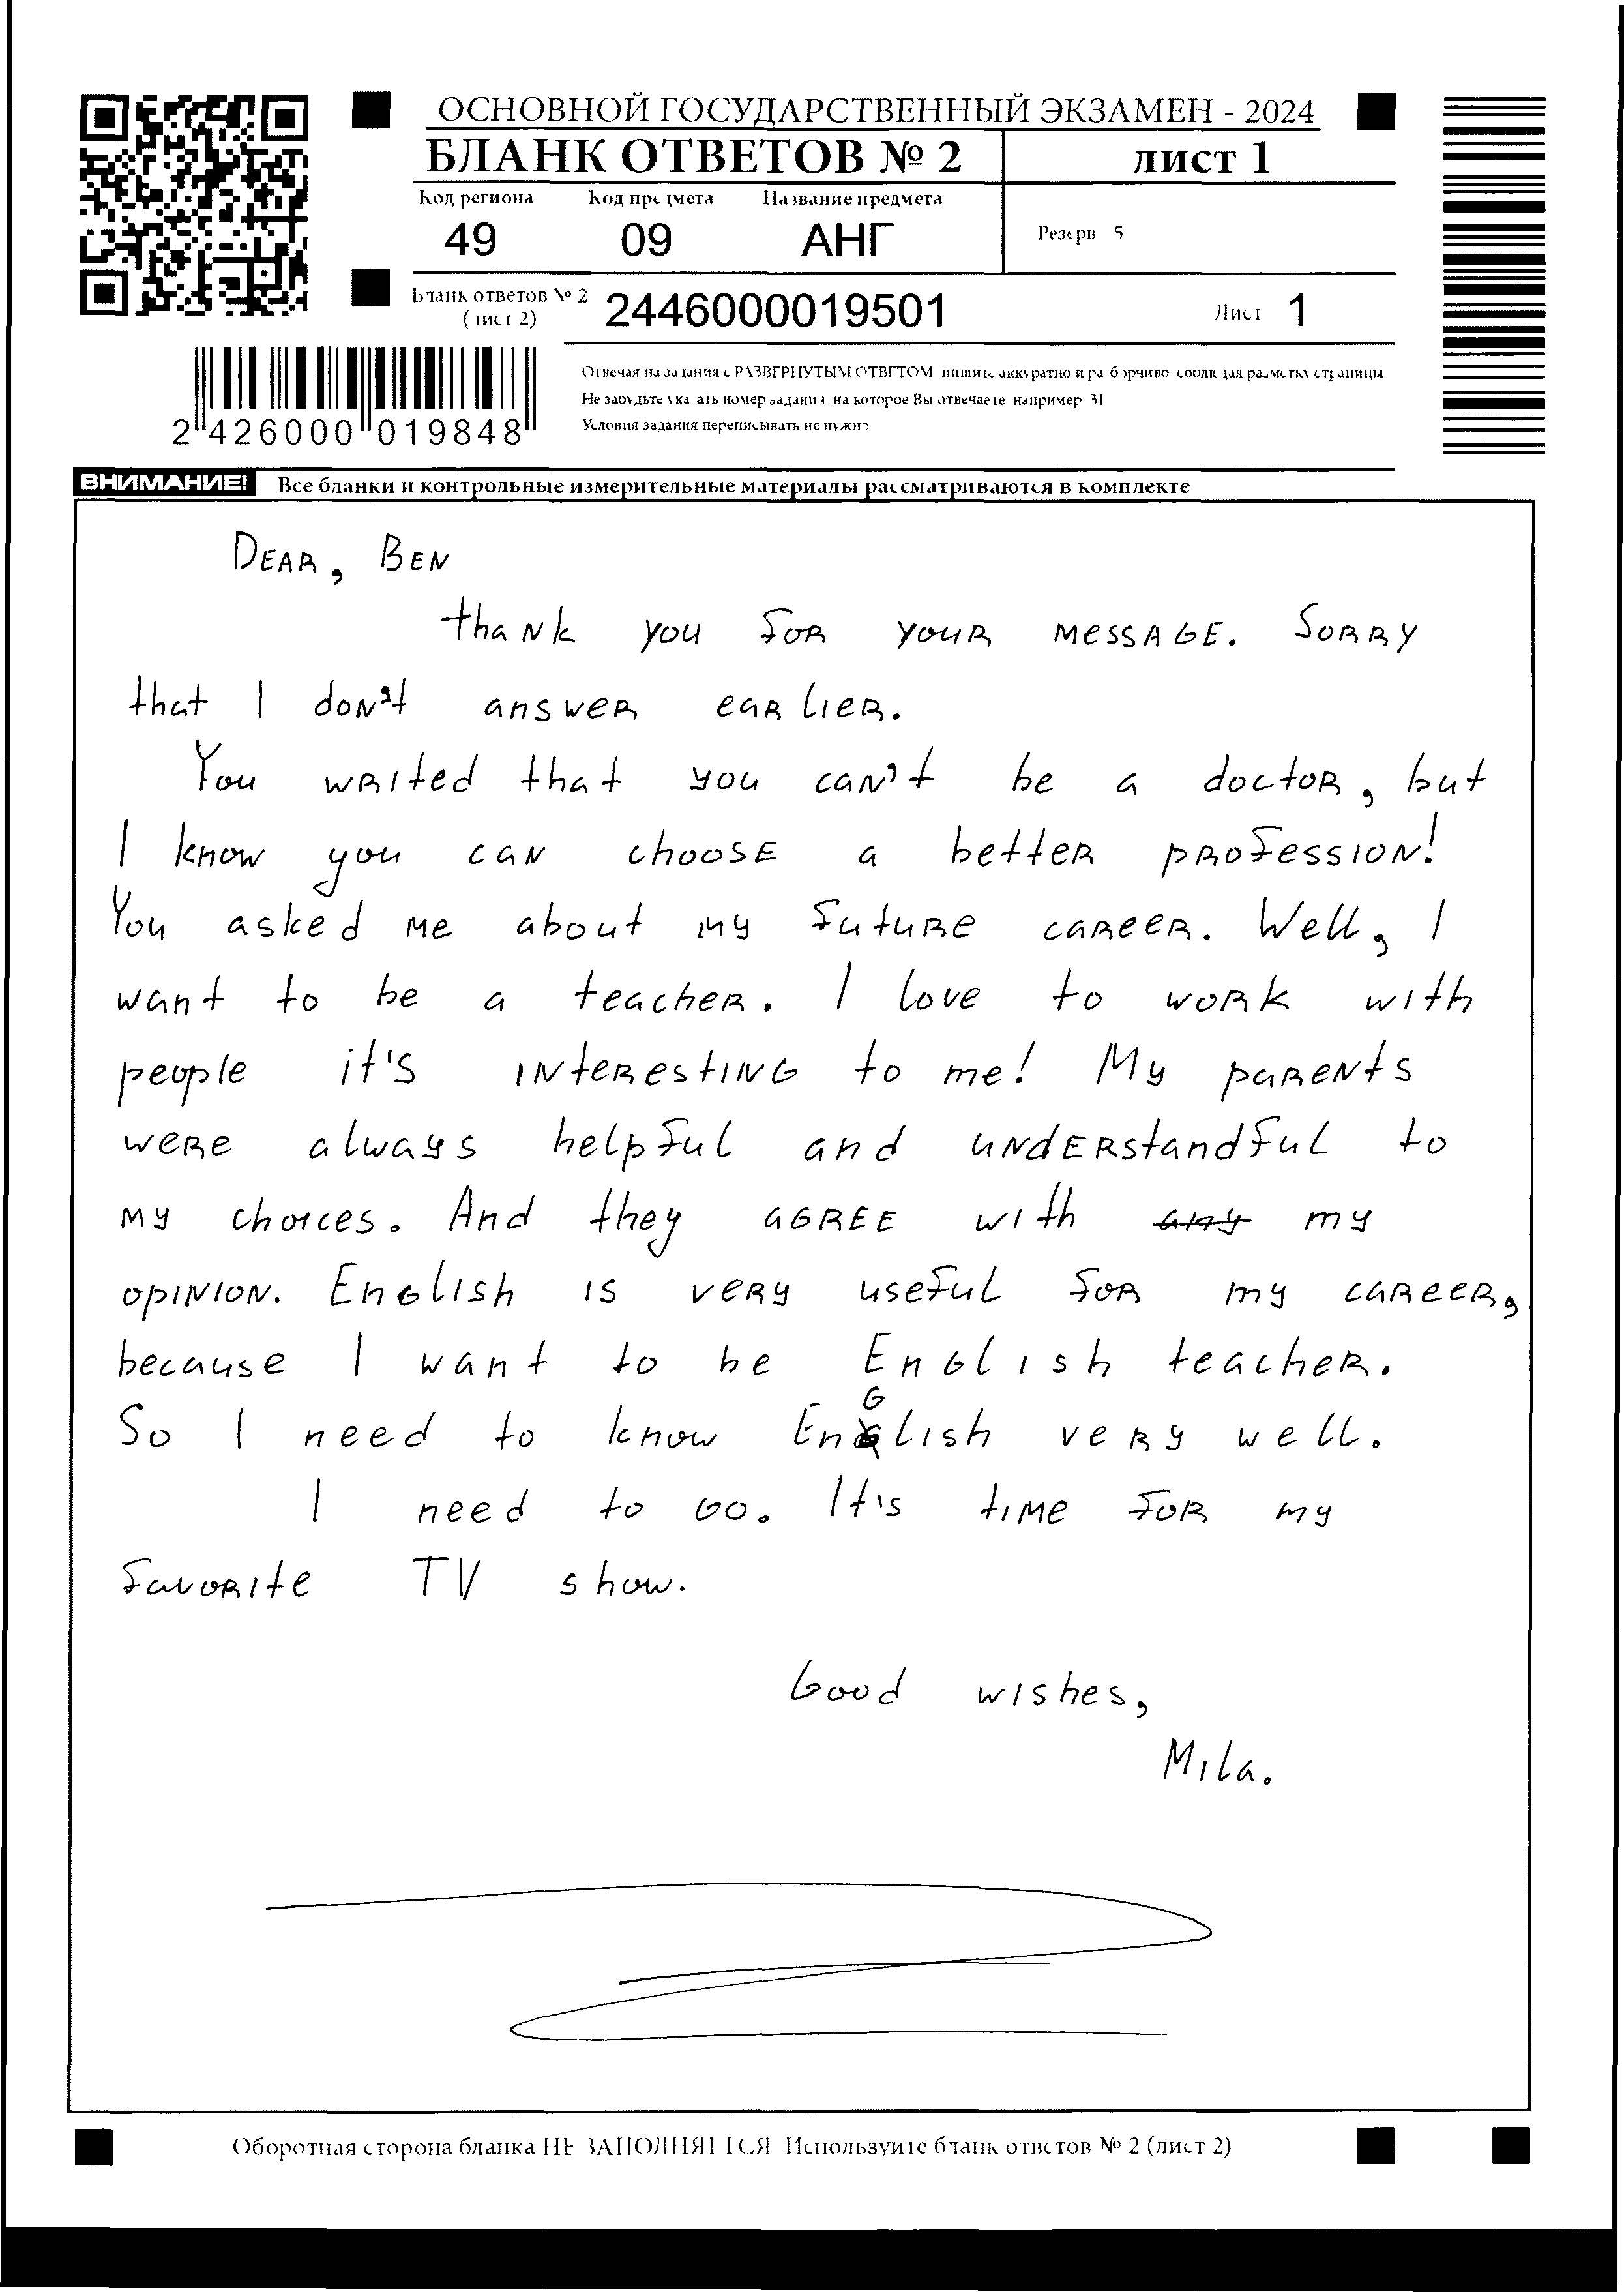 ОСНОВНОЙ ГОСУДАРСТВЕННЫЙ ЭКЗАМЕН - 2024
БЛАНК ОТВЕТОВ № 2 лист 1
Код региона Код предмета Название предмета
49 09 АНГ
Резерв 5
Бланк ответов № 2
(лист 2) 2446000019501 Лист 1
Отвечая на задания с РАЗВЕРНУТЫМ ОТВЕТОМ пишите аккуратно и разборчиво соблюдая разметку страницы
Не забудьте указать номер задания на которое Вы отвечаете например 31
Условия задания переписывать не нужно
2 426000 019848
ВНИМАНИЕ! Все бланки и контрольные измерительные материалы рассматриваются в комплекте
Dear, Ben
thank you for your message. Sorry
that I don't answer earlier.
You writed that you can't be a doctor, but
I know you can choose a better profession!
You asked me about my future career. Well, I
want to be a teacher. I love to work with
people it's interesting to me! My parents
were always helpful and understandful to
my choices. And they agree with my
opinion. English is very useful for my career,
because I want to be English teacher.
So I need to know English very well.
I need to go. It's time for my
favorite TV show.
Good wishes,
Mila.
Оборотная сторона бланка НЕ ЗАПОЛНЯЕТСЯ Используйте бланк ответов № 2 (лист 2)